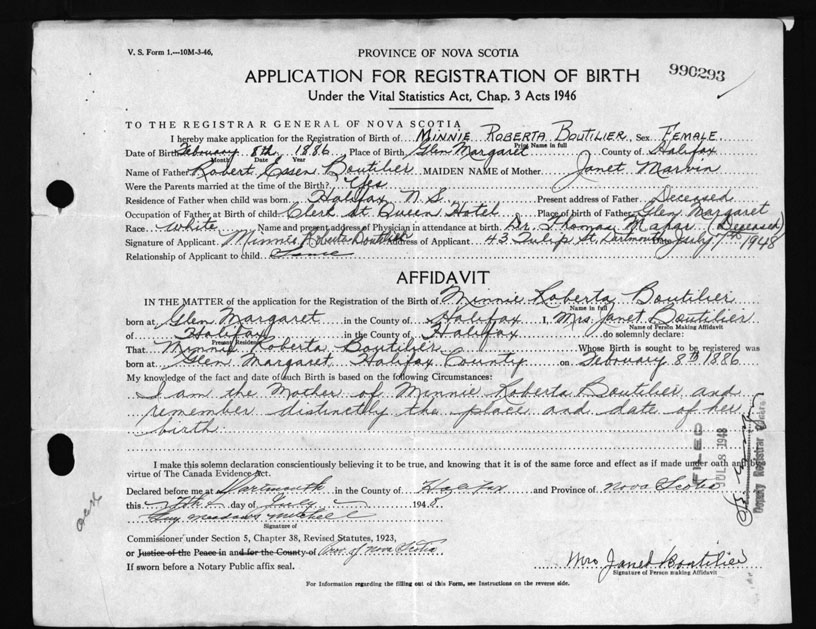 V. S. Form 1.—10M-3-46.
PROVINCE OF NOVA SCOTIA
990293
APPLICATION FOR REGISTRATION OF BIRTH
Under the Vital Statistics Act, Chap. 3 Acts 1946
TO THE REGISTRAR GENERAL OF NOVA SCOTIA
I hereby make application for the Registration of Birth of MINNIE ROBERTA BOUTILIER Sex FEMALE
Print Name in full
Date of Birth February 8th 1886 Place of Birth Glen Margaret County of Halifax
Month Date Year
Name of Father Robert Essen Boutilier MAIDEN NAME of Mother Janet Marvin
Were the Parents married at the time of the Birth? Yes
Residence of Father when child was born Halifax N.S. Present address of Father Deceased
Occupation of Father at Birth of child Clerk at Queen Hotel Place of birth of Father Glen Margaret
Race white Name and present address of Physician in attendance at birth Dr. Thomas (Deceased)
Signature of Applicant Minnie Roberta Boutilier Address of Applicant 43 Tulip St. Dartmouth Date July 7th 1948
Relationship of Applicant to child Same
AFFIDAVIT
IN THE MATTER of the application for the Registration of the Birth of Minnie Roberta Boutilier
Name in full
born at Glen Margaret in the County of Halifax I, Mrs. Janet Boutilier
Name of Person Making Affidavit
of Halifax in the County of Halifax do solemnly declare:
Present Residence
That Minnie Roberta Boutilier Whose Birth is sought to be registered was
born at Glen Margaret Halifax County on February 8th 1886
My knowledge of the fact and date of such Birth is based on the following Circumstances:
I am the Mother of Minnie Roberta Boutilier and
remember distinctly the place and date of her
birth
I make this solemn declaration conscientiously believing it to be true, and knowing that it is of the same force and effect as if made under oath and by
virtue of The Canada Evidence Act.
Declared before me at Dartmouth in the County of Halifax and Province of Nova Scotia
this 7th day of July 1948
Guy Meadows Mitchell
Signature of
Commissioner under Section 5, Chapter 38, Revised Statutes, 1923,
or Justice of the Peace in and for the County of Prov. of Nova Scotia
If sworn before a Notary Public affix seal.
Mrs Janet Boutilier
Signature of Person making Affidavit
For Information regarding the filling out of this Form, see Instructions on the reverse side.
FILED
JUL 8 1948
Deputy Registrar